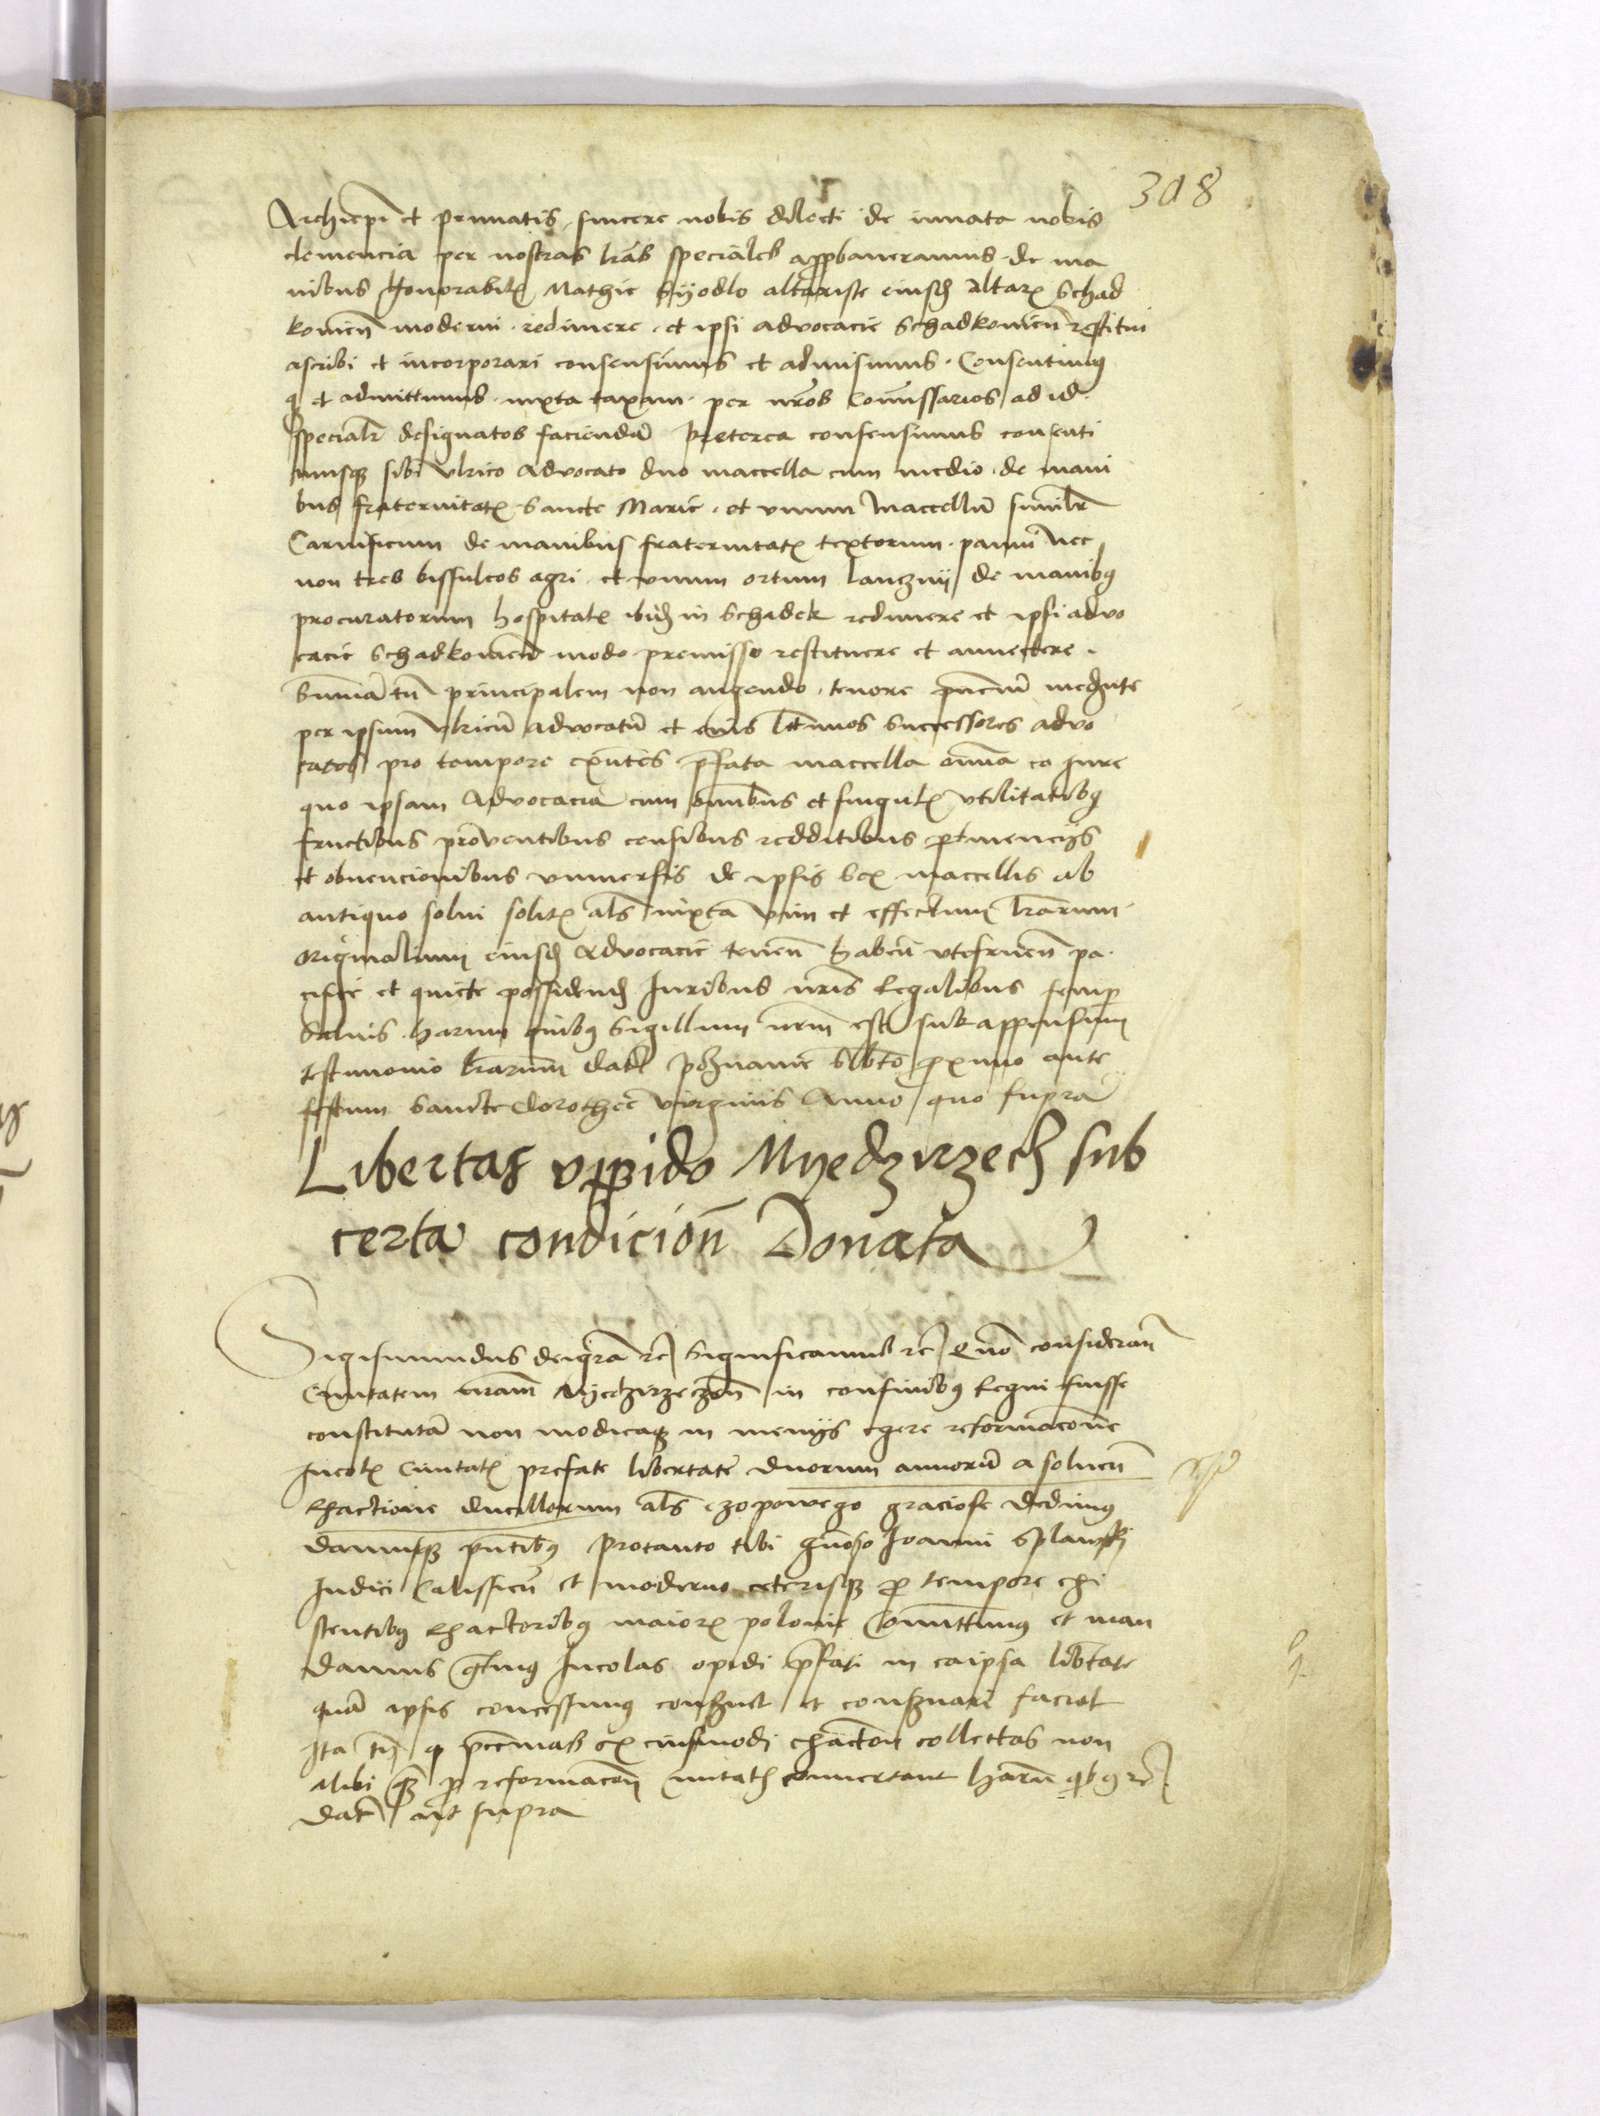 308
Archiepi et primatis sincere nobis dilecti de innata nobis
clemencia per nostras lras speciales appbaueramus de ma
nibus Honorabil Mathie altariste eiusd Altar Schad
kouien moderni redimere et ipsi advocacie Schadkouien restitui
ascribi et incorporari consensimus et admisimus Consentimus
q et admittimus iuxta taxam per nros Comissarios ad id
specialr designatos faciendam Preterea consensimus consenti
musq sibi Vlrico Advocato duo maccella cum medio de mani
bus fraternitat Sancte Marie et vnum maccellum similr
Carnificum de manibus fraternitat textorum pannı nec
non tres bissulcos agri et vnum ortum de manibus
procuratorum hospitalis ibid in Schadek redimere et ipsi advo
cacie Schadkouien modo premisso restituere et annectere
Summa tn principalem non augendo tenore pncium mediante
per ipsum Vlricum advocatum et eius ltimos successores advo
catos pro tempore exntes pfata maccella omnia eo iure
quo ipsam Advocacia cum omibus et singul vtilitatibus
fructibus prouentibus censibus redditibus ptinencijs
et obuencionibus vniuersis de ipsis sex maccellis ab
antiquo solui solit als iuxta vim et effectum lrarum
originalium eiusd Advocacie tenen haben vtifruen pa
cifice et quiete possidend Iuribus nris Regalibus semp
saluis harum quibus Sigillum nrm est subappensum
testimonio lrarum dat Poznanie Sbbto proximo ante
festum Sancte Dorothee virginis Anno quo supra
Libertas oppido Myedzirzech sub
certa condicion Donata
Sigismundus dei gra rc Significamus rc Quo consideran
Ciuitatem nram Myedzirzeczen in confinibus Regni fuisse
constituta non modicaq in menijs egere reformacione
Incol Ciuitat prefate libertate duorum annoru a soluen
exactione ducillorum als czopowego graciose dedimus
damusq pntibus Protanto tibi gnoso Ioanni
Iudici Calissien et moderno ceterisq p tempore exi
stentibus exactoribus maior polonie Comittimus et man
damus qtinus Incolas opidi pfati in ea ipsa libtate
qua ipsis concessimus conseruet et conseruari faciat
Ita tn q pecunias ex eiusmodi exaction collectas non
alibi p reformacon ciuitatis conuertant Haru qibus rc
Dat ut supra